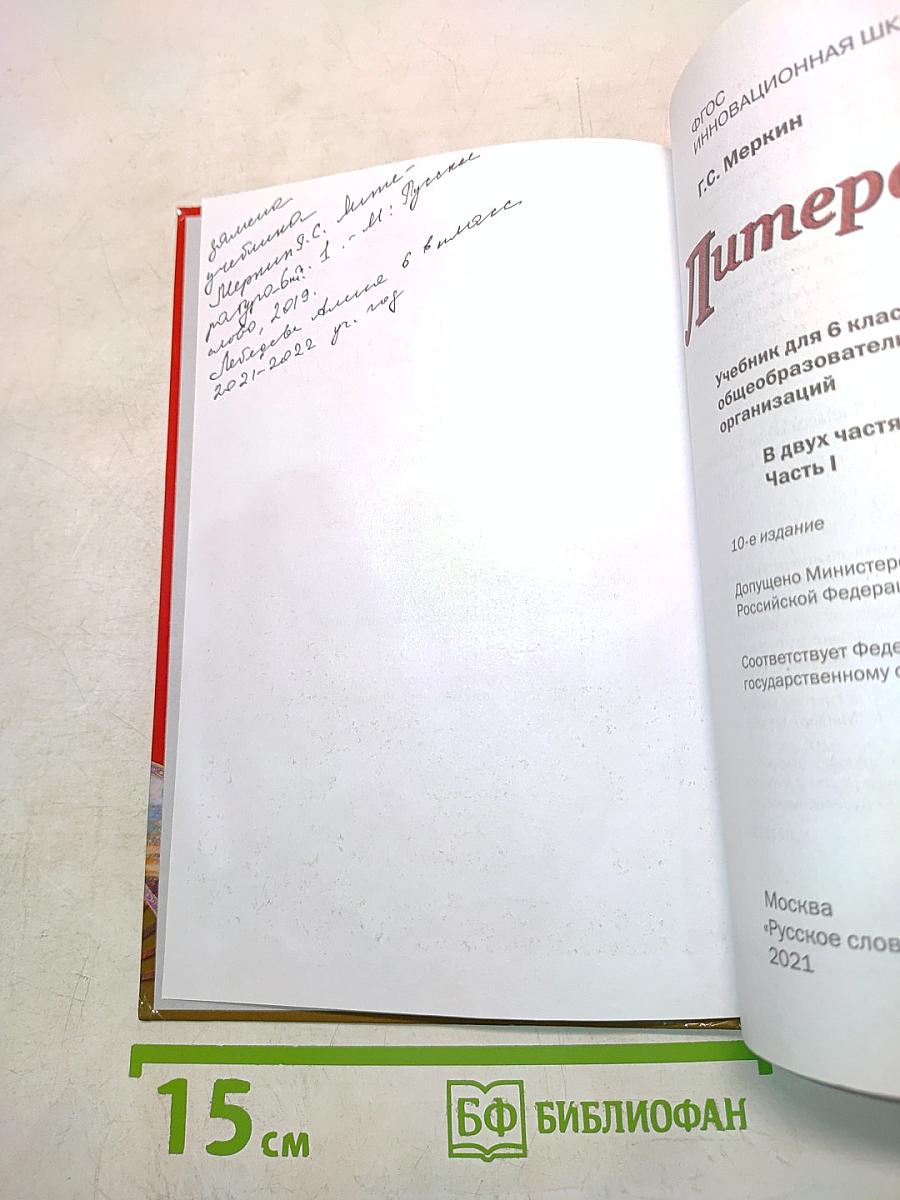 замена
учебника
Меркин Г.С. Лите-
ратура 6кл. Ч. 1 .- М: Русское
слово, 2019.
Лебедева Алина 6 в класс
2021-2022 уч. год
ФГОС
ИННОВАЦИОННАЯ ШК
Г.С. Меркин
Литера
Учебник для 6 клас
общеобразователь
организаций
В двух частя
Часть I
10-е издание
Допущено Министерс
Российской Федерац
Соответствует Феде
государственному с
Москва
«Русское слов
2021
15 см
БФ БИБЛИОФАН